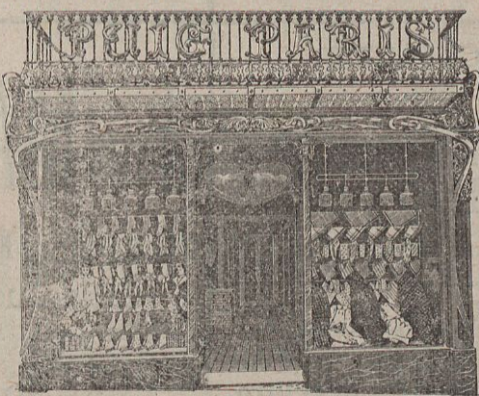 PUIG PARIS